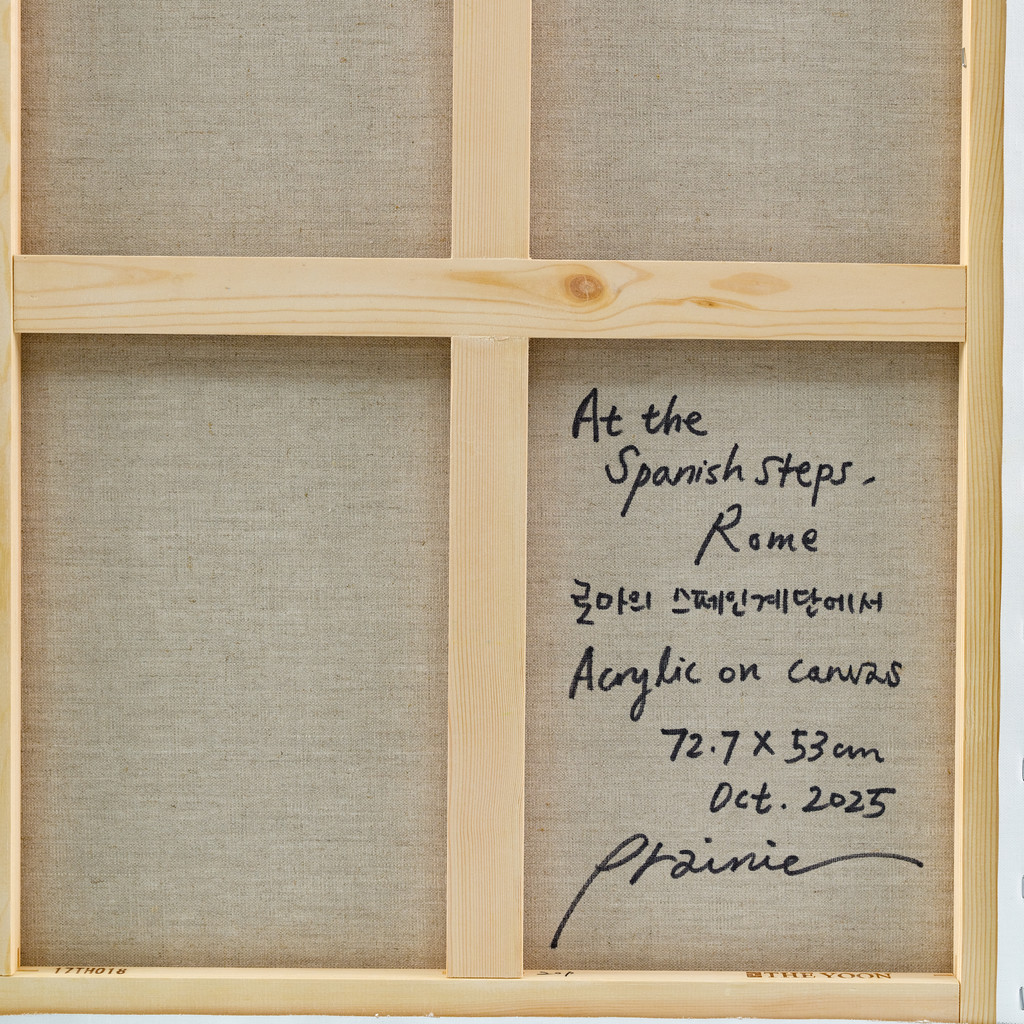 At the
Spanish Steps,
Rome
로마의 스페인계단에서
Acrylic on canvas
72.7 X 53 cm
Oct. 2025
Prainie
17TH018
THE YOON